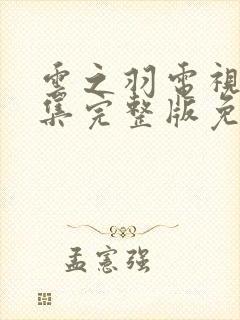 雲之羽電視
集完整版免
孟憲強